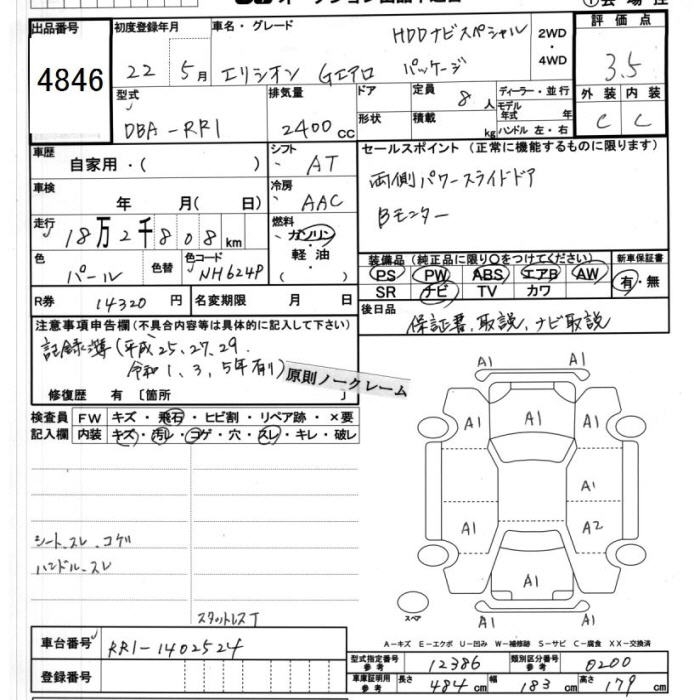 出品番号 初度登録年月 車名・グレード HDDナビスペシャル 2WD・4WD 評価点
4846 22年 5月 エリシオン Gエアロ パッケージ 3.5
型式 排気量 ドア 定員 8人 ディーラー・並行 外装 内装
DBA-RR1 2400cc 形状 積載 kg モデル年式 年 C C
ハンドル 左・右
車歴 自家用・( ) シフト AT セールスポイント (正常に機能するものに限ります)
車検 年 月( 日) 冷房 AAC 両側パワースライドドア
走行 18万2千808km 燃料 ガソリン・軽油・( ) Bモニター
色 パール 色替 色コード NH624P 装備品 (純正品に限り○をつけてください) 新車保証書
PS PW ABS エアB AW 有・無
SR ナビ TV カワ
R券 14320円 名変期限 月 日 後日品
保証書、取説、ナビ取説
注意事項申告欄 (不具合内容等は具体的に記入して下さい)
記録簿(平成25.27.29.
令和1、3、5年有り) 原則ノークレーム
修復歴 有 〔箇所 〕
検査員 FW キズ・飛石・ヒビ割・リペア跡・×要
記入欄 内装 キズ・汚レ・コゲ・穴・スレ・キレ・破レ
A1 A1
A1 A1 A1
A1
A1
A1 A2
A1
A1 A1
シート.スレ.コゲ
ハンドル.スレ
スタットレスT
スペア
A-キズ E-エクボ U-凹み W-補修跡 S-サビ C-腐食 XX-交換済
車台番号 RR1-1402524
型式指定番号 参考 12386 類別区分番号 参考 0200
登録番号 車庫証明用 参考 長さ 484cm 幅 183cm 高さ 179cm